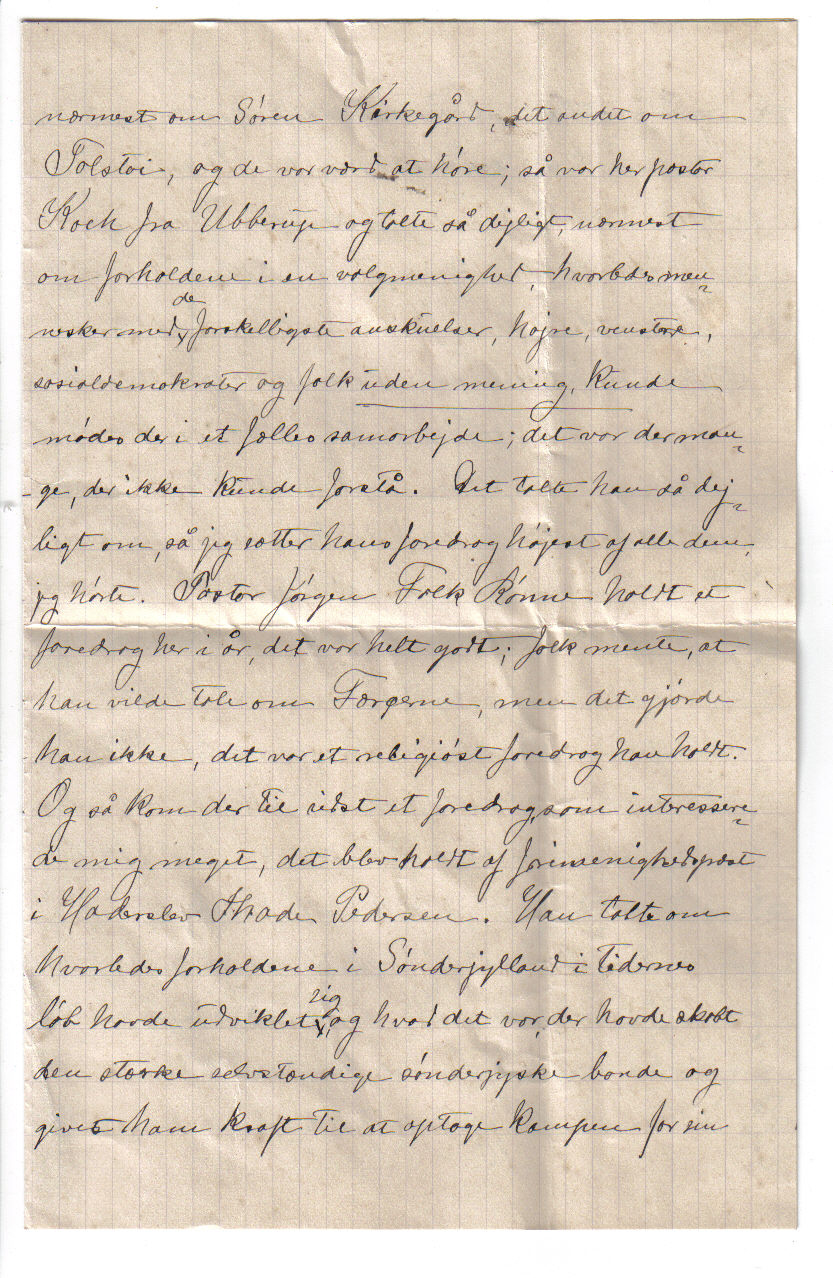 nærmest om Sören Kirkegård, det andet om
Tolstoi, og de var værd at höre; så var her pastor
Koch fra Ubberup og talte så dejligt, nærmest
om forholdene i en valgmenighed, hvorledes men=
nesker med de forskelligste anskuelser, højre, venstre,
sosialdemokrater og folk uden mening, kunde
mödes der i et fælles samarbejde; det var der man=
ge, der ikke kunde forstå. Det talte han så dej=
ligt om, så jeg sætter hans foredrag höjest af alle dem,
jeg hörte. Pastor Jörgen Falk Rönne holdt et
foredrag her i år, det var helt godt; folk mente, at
han vilde tale om Færöerne, men det gjörde
han ikke, det var et religiöst foredrag han holdt.
Og så kom der til sidst et foredrag, som interessere=
de mig meget, det blev holdt af frimenighedspræst
i Haderslev Thade Pedersen. Han talte om
hvorledes forholdene i Sönderjylland i tidernes
löb havde udviklet sig, og hvad det var, der havde skabt
den stærke selvstændige sönderjyske bonde og
givet ham kraft til at optage kampen for sin